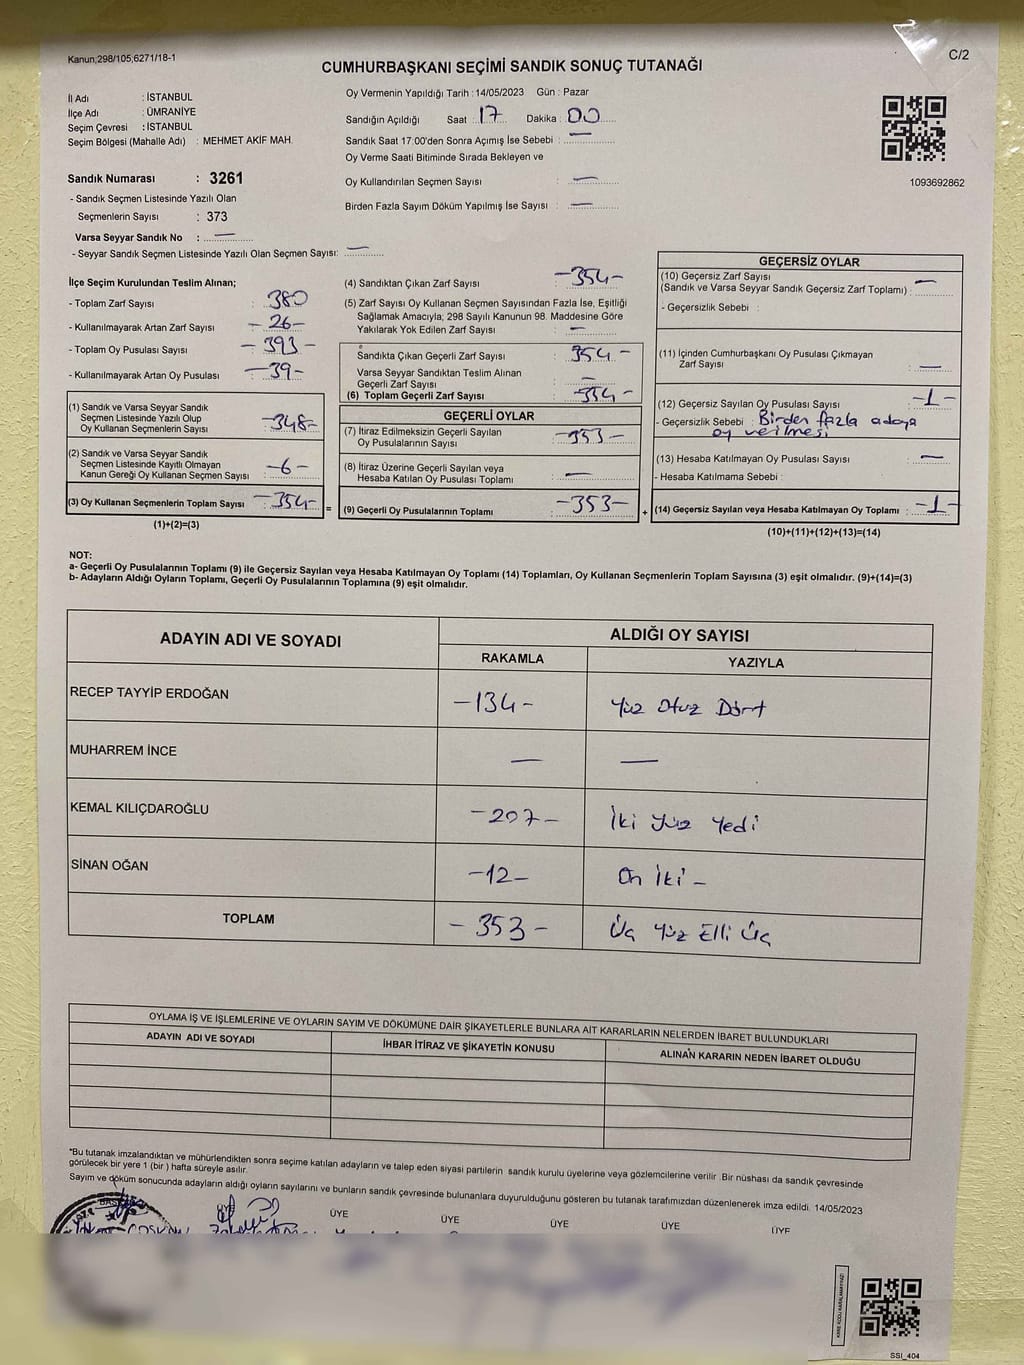 Kanun;298/105;6271/18-1
C/2
CUMHURBAŞKANI SEÇİMİ SANDIK SONUÇ TUTANAĞI
İl Adı : İSTANBUL
İlçe Adı : ÜMRANİYE
Seçim Çevresi : İSTANBUL
Seçim Bölgesi (Mahalle Adı) : MEHMET AKİF MAH.
Sandık Numarası : 3261
- Sandık Seçmen Listesinde Yazılı Olan
Seçmenlerin Sayısı : 373
Varsa Seyyar Sandık No : —
- Seyyar Sandık Seçmen Listesinde Yazılı Olan Seçmen Sayısı: —
Oy Vermenin Yapıldığı Tarih : 14/05/2023 Gün : Pazar
Sandığın Açıldığı Saat 17 Dakika 00
Sandık Saat 17.00'den Sonra Açımış İse Sebebi : —
Oy Verme Saati Bitiminde Sırada Bekleyen ve
Oy Kullandırılan Seçmen Sayısı : —
Birden Fazla Sayım Döküm Yapılmış İse Sayısı : —
1093692862
İlçe Seçim Kurulundan Teslim Alınan;
- Toplam Zarf Sayısı : 380
- Kullanılmayarak Artan Zarf Sayısı : -26-
- Toplam Oy Pusulası Sayısı : -393-
- Kullanılmayarak Artan Oy Pusulası : -39-
(1) Sandık ve Varsa Seyyar Sandık
Seçmen Listesinde Yazılı Olup
Oy Kullanan Seçmenlerin Sayısı : -348-
(2) Sandık ve Varsa Seyyar Sandık
Seçmen Listesinde Kayıtlı Olmayan
Kanun Gereği Oy Kullanan Seçmen Sayısı : -6-
(3) Oy Kullanan Seçmenlerin Toplam Sayısı : -354-
(1)+(2)=(3)
=
(4) Sandıktan Çıkan Zarf Sayısı : -354-
(5) Zarf Sayısı Oy Kullanan Seçmen Sayısından Fazla İse, Eşitliği
Sağlamak Amacıyla; 298 Sayılı Kanunun 98. Maddesine Göre
Yakılarak Yok Edilen Zarf Sayısı : —
Sandıkta Çıkan Geçerli Zarf Sayısı : 354-
Varsa Seyyar Sandıktan Teslim Alınan
Geçerli Zarf Sayısı : —
(6) Toplam Geçerli Zarf Sayısı : -354-
GEÇERLİ OYLAR
(7) İtiraz Edilmeksizin Geçerli Sayılan
Oy Pusulalarının Sayısı : -353-
(8) İtiraz Üzerine Geçerli Sayılan veya
Hesaba Katılan Oy Pusulası Toplamı : —
(9) Geçerli Oy Pusulalarının Toplamı : -353-
+
GEÇERSİZ OYLAR
(10) Geçersiz Zarf Sayısı
(Sandık ve Varsa Seyyar Sandık Geçersiz Zarf Toplamı) : —
- Geçersizlik Sebebi :
(11) İçinden Cumhurbaşkanı Oy Pusulası Çıkmayan
Zarf Sayısı : —
(12) Geçersiz Sayılan Oy Pusulası Sayısı : -1-
- Geçersizlik Sebebi : Birden fazla adaya
oy verilmesi
(13) Hesaba Katılmayan Oy Pusulası Sayısı : —
- Hesaba Katılmama Sebebi :
(14) Geçersiz Sayılan veya Hesaba Katılmayan Oy Toplamı : -1-
(10)+(11)+(12)+(13)=(14)
NOT:
a- Geçerli Oy Pusulalarının Toplamı (9) ile Geçersiz Sayılan veya Hesaba Katılmayan Oy Toplamı (14) Toplamları, Oy Kullanan Seçmenlerin Toplam Sayısına (3) eşit olmalıdır. (9)+(14)=(3)
b- Adayların Aldığı Oyların Toplamı, Geçerli Oy Pusulalarının Toplamına (9) eşit olmalıdır.
ADAYIN ADI VE SOYADI ALDIĞI OY SAYISI
RAKAMLA YAZIYLA
RECEP TAYYİP ERDOĞAN -134- Yüz Otuz Dört
MUHARREM İNCE — —
KEMAL KILIÇDAROĞLU -207- İki Yüz Yedi
SİNAN OĞAN -12- On İki -
TOPLAM -353- Üç Yüz Elli Üç
OYLAMA İŞ VE İŞLEMLERİNE VE OYLARIN SAYIM VE DÖKÜMÜNE DAİR ŞİKAYETLERLE BUNLARA AİT KARARLARIN NELERDEN İBARET BULUNDUKLARI
ADAYIN ADI VE SOYADI İHBAR İTİRAZ VE ŞİKAYETİN KONUSU ALINAN KARARIN NEDEN İBARET OLDUĞU
*Bu tutanak imzalandıktan ve mühürlendikten sonra seçime katılan adayların ve talep eden siyasi partilerin sandık kurulu üyelerine veya gözlemcilerine verilir. Bir nüshası da sandık çevresinde
görülecek bir yere 1 (bir) hafta süreyle asılır.
Sayım ve döküm sonucunda adayların aldığı oyların sayılarını ve bunların sandık çevresinde bulunanlara duyurulduğunu gösteren bu tutanak tarafımızdan düzenlenerek imza edildi. 14/05/2023
BAŞKAN ÜYE ÜYE ÜYE ÜYE ÜYE ÜYE
SSI_404